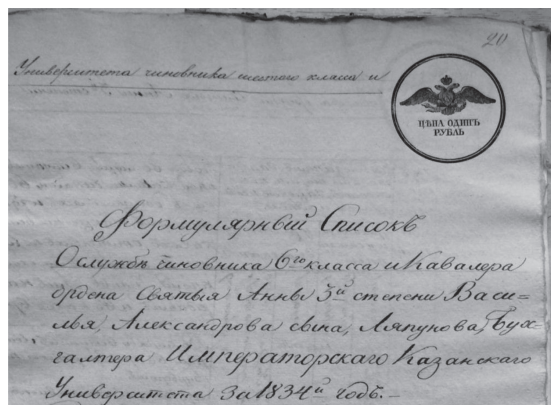 20
Университета чиновника шестаго класса и
ЦѢНА ОДИНЪ
РУБЛЬ
Формулярный Списокъ
О службѣ чиновника 6го класса и Кавалера
ордена Святыя Анны 3й степени Васи=
лья, Александрова сына, Ляпунова, Бух=
галтера Императорскаго Казанскаго
Университета за 1834й годъ.-